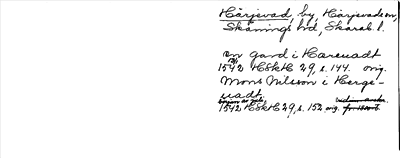 Härjevad, by, Härjevads sn,
Skånings hd, Skarab. l.
en gard i Hareuadt
1542 HSkH 29, s. 144. orig.
Mons Nilsson i Herge-
uadt,
1542 HSkH 29, s. 152 orig.